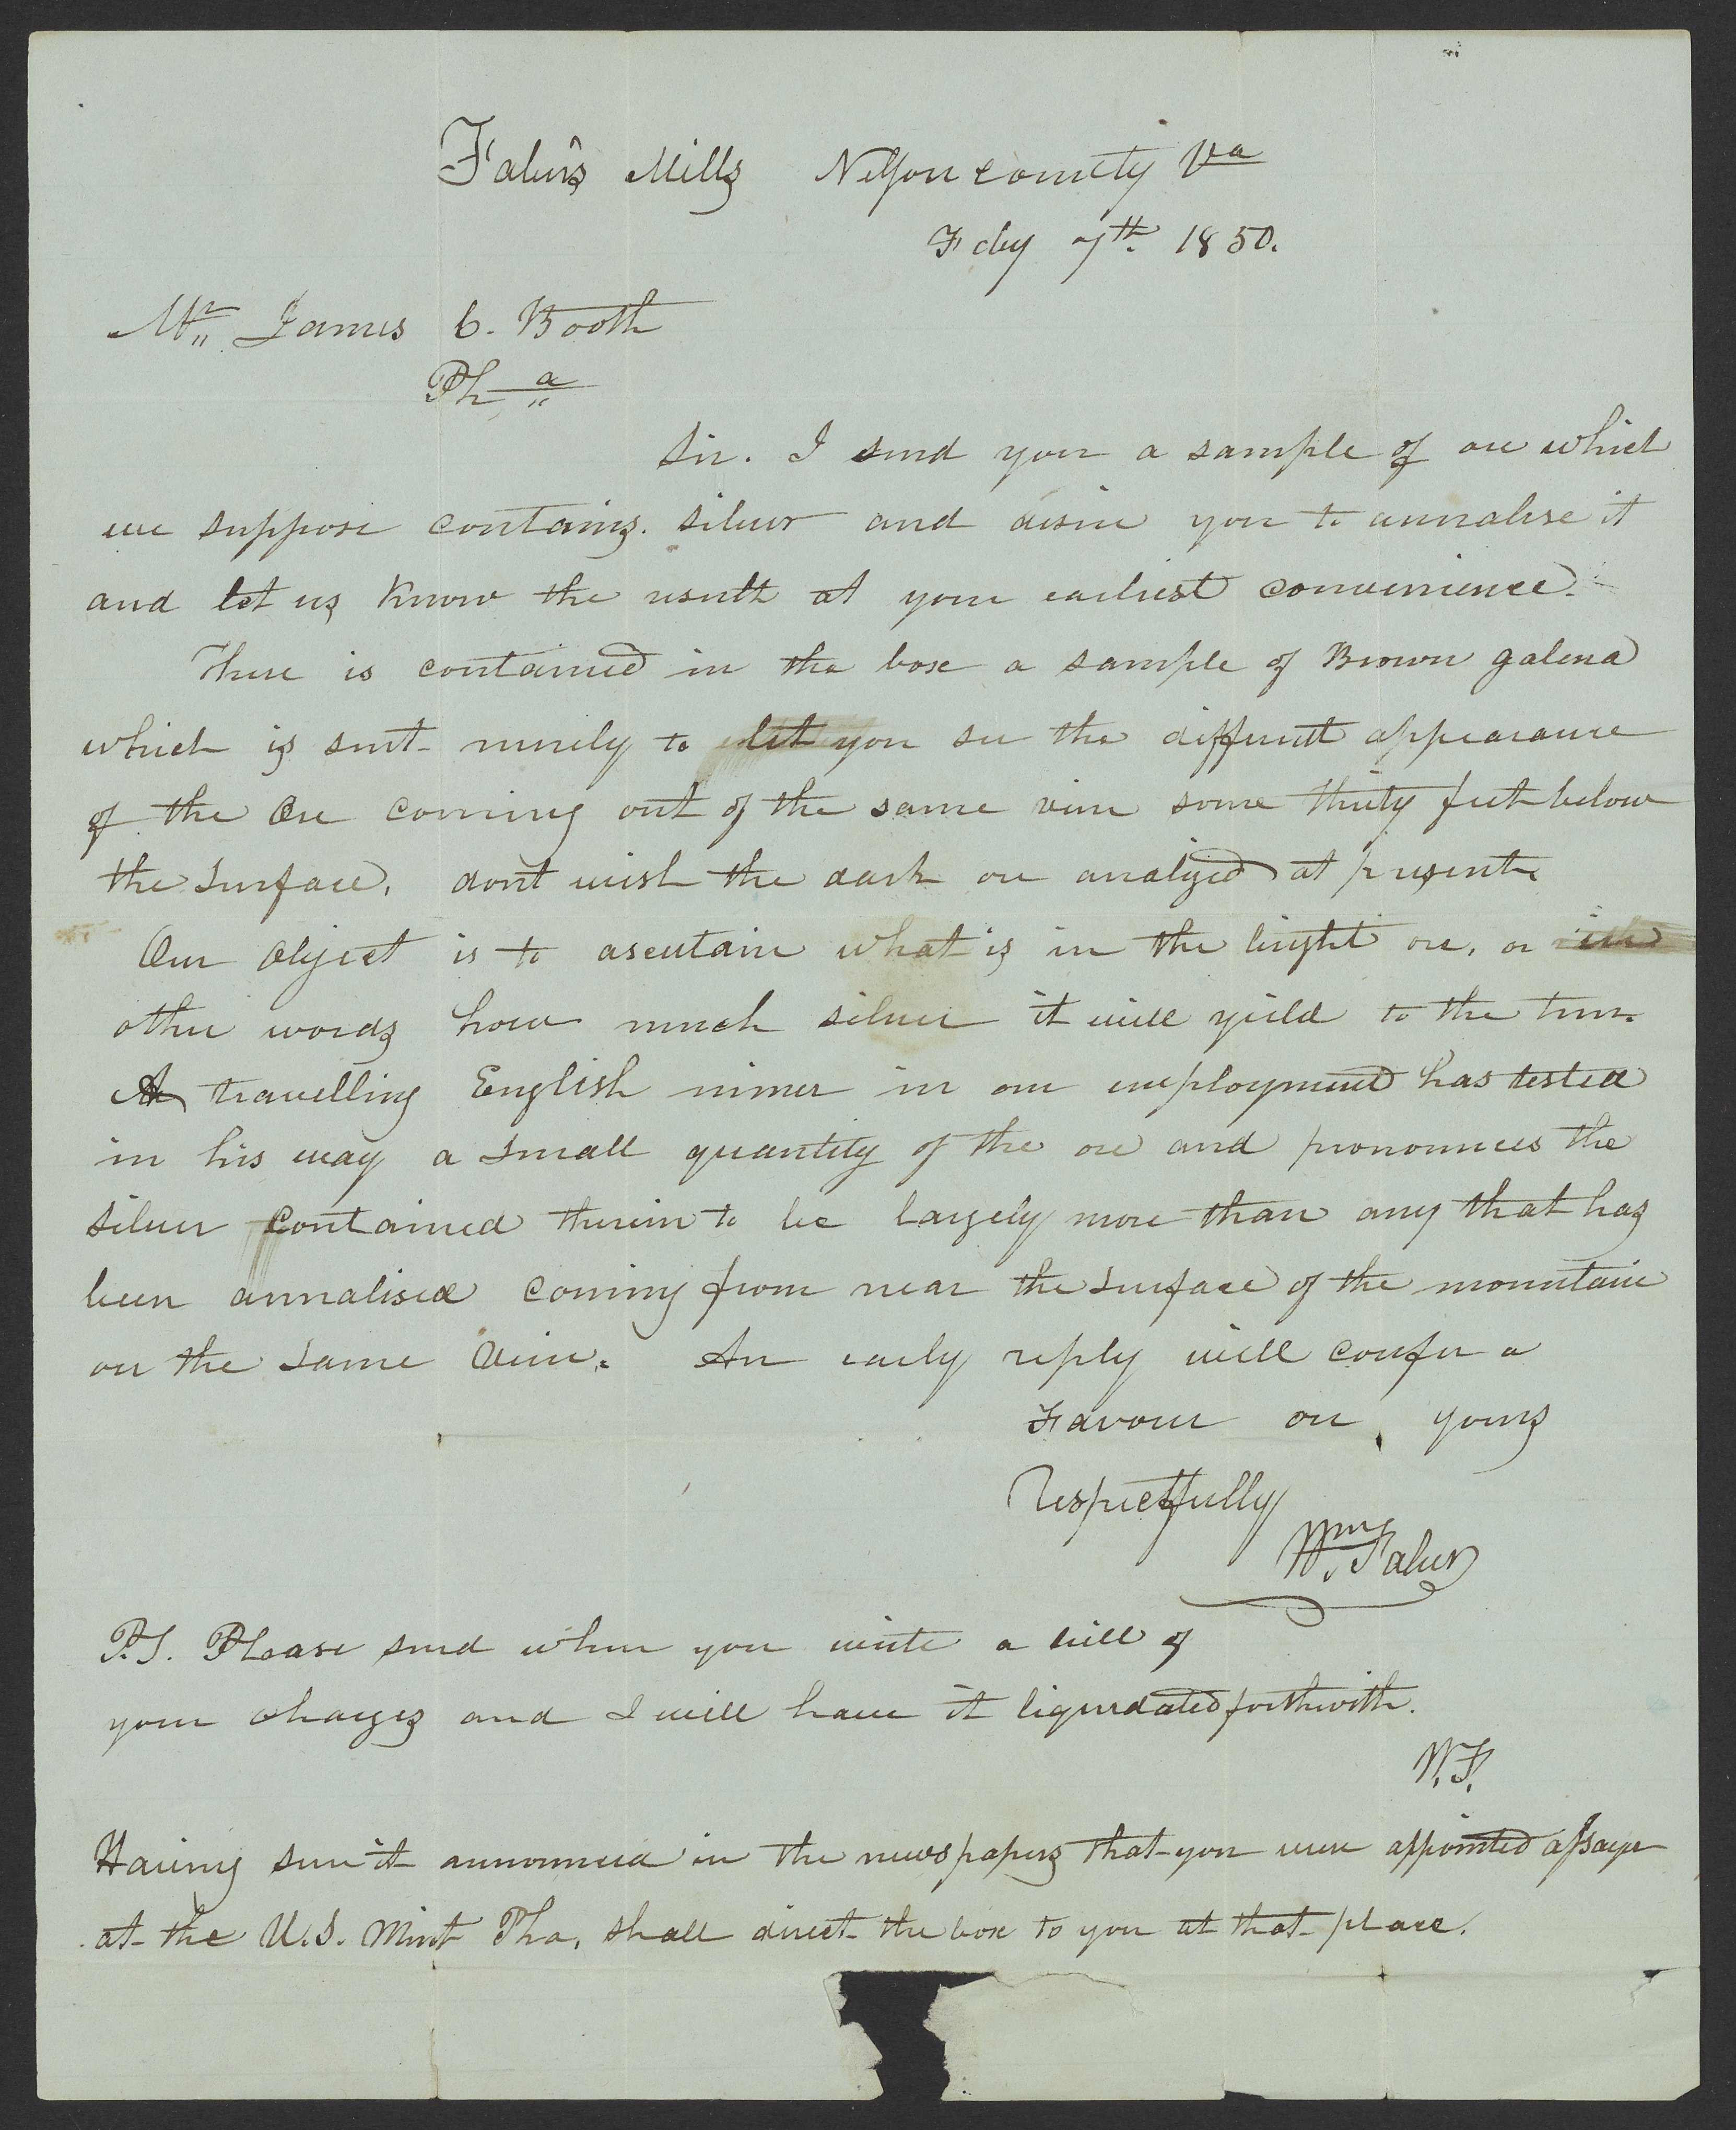 Faber's Mills Nelson county Va
Feby 7th 1850.
Mr James C. Booth
Pha
Sir. I send you a sample of ore which
we suppose contains. silver and desire you to annalise it
and let us know the result at your earliest convenience.
There is contained in the box a sample of Brown galena
which is sent merely to let you see the differentt appearance
of the Ore coming out of the same vein some thirty feet below
the surface. dont wish the dark ore analized at present.
Our object is to asertain what is in the bright ore, or in
other words how much silver it will yield to the tun.
A travelling English minor in our employment has tested
in his way a small quantity of the ore and pronounces the
silver contained therein to be largely more than any that has
been annalised coming from near the surface of the mountain
on the same Vein. An early reply will confer a
Favour on yours
Respectfully
Wm. Faber
P.S. Please send when you write a bill of
your charges and I will have it liquidated forthwith.
W.F.
Having seen it announced in the newspapers that you were appointed assayer
at the U.S. Mint Pha, shall direct the box to you at that place.